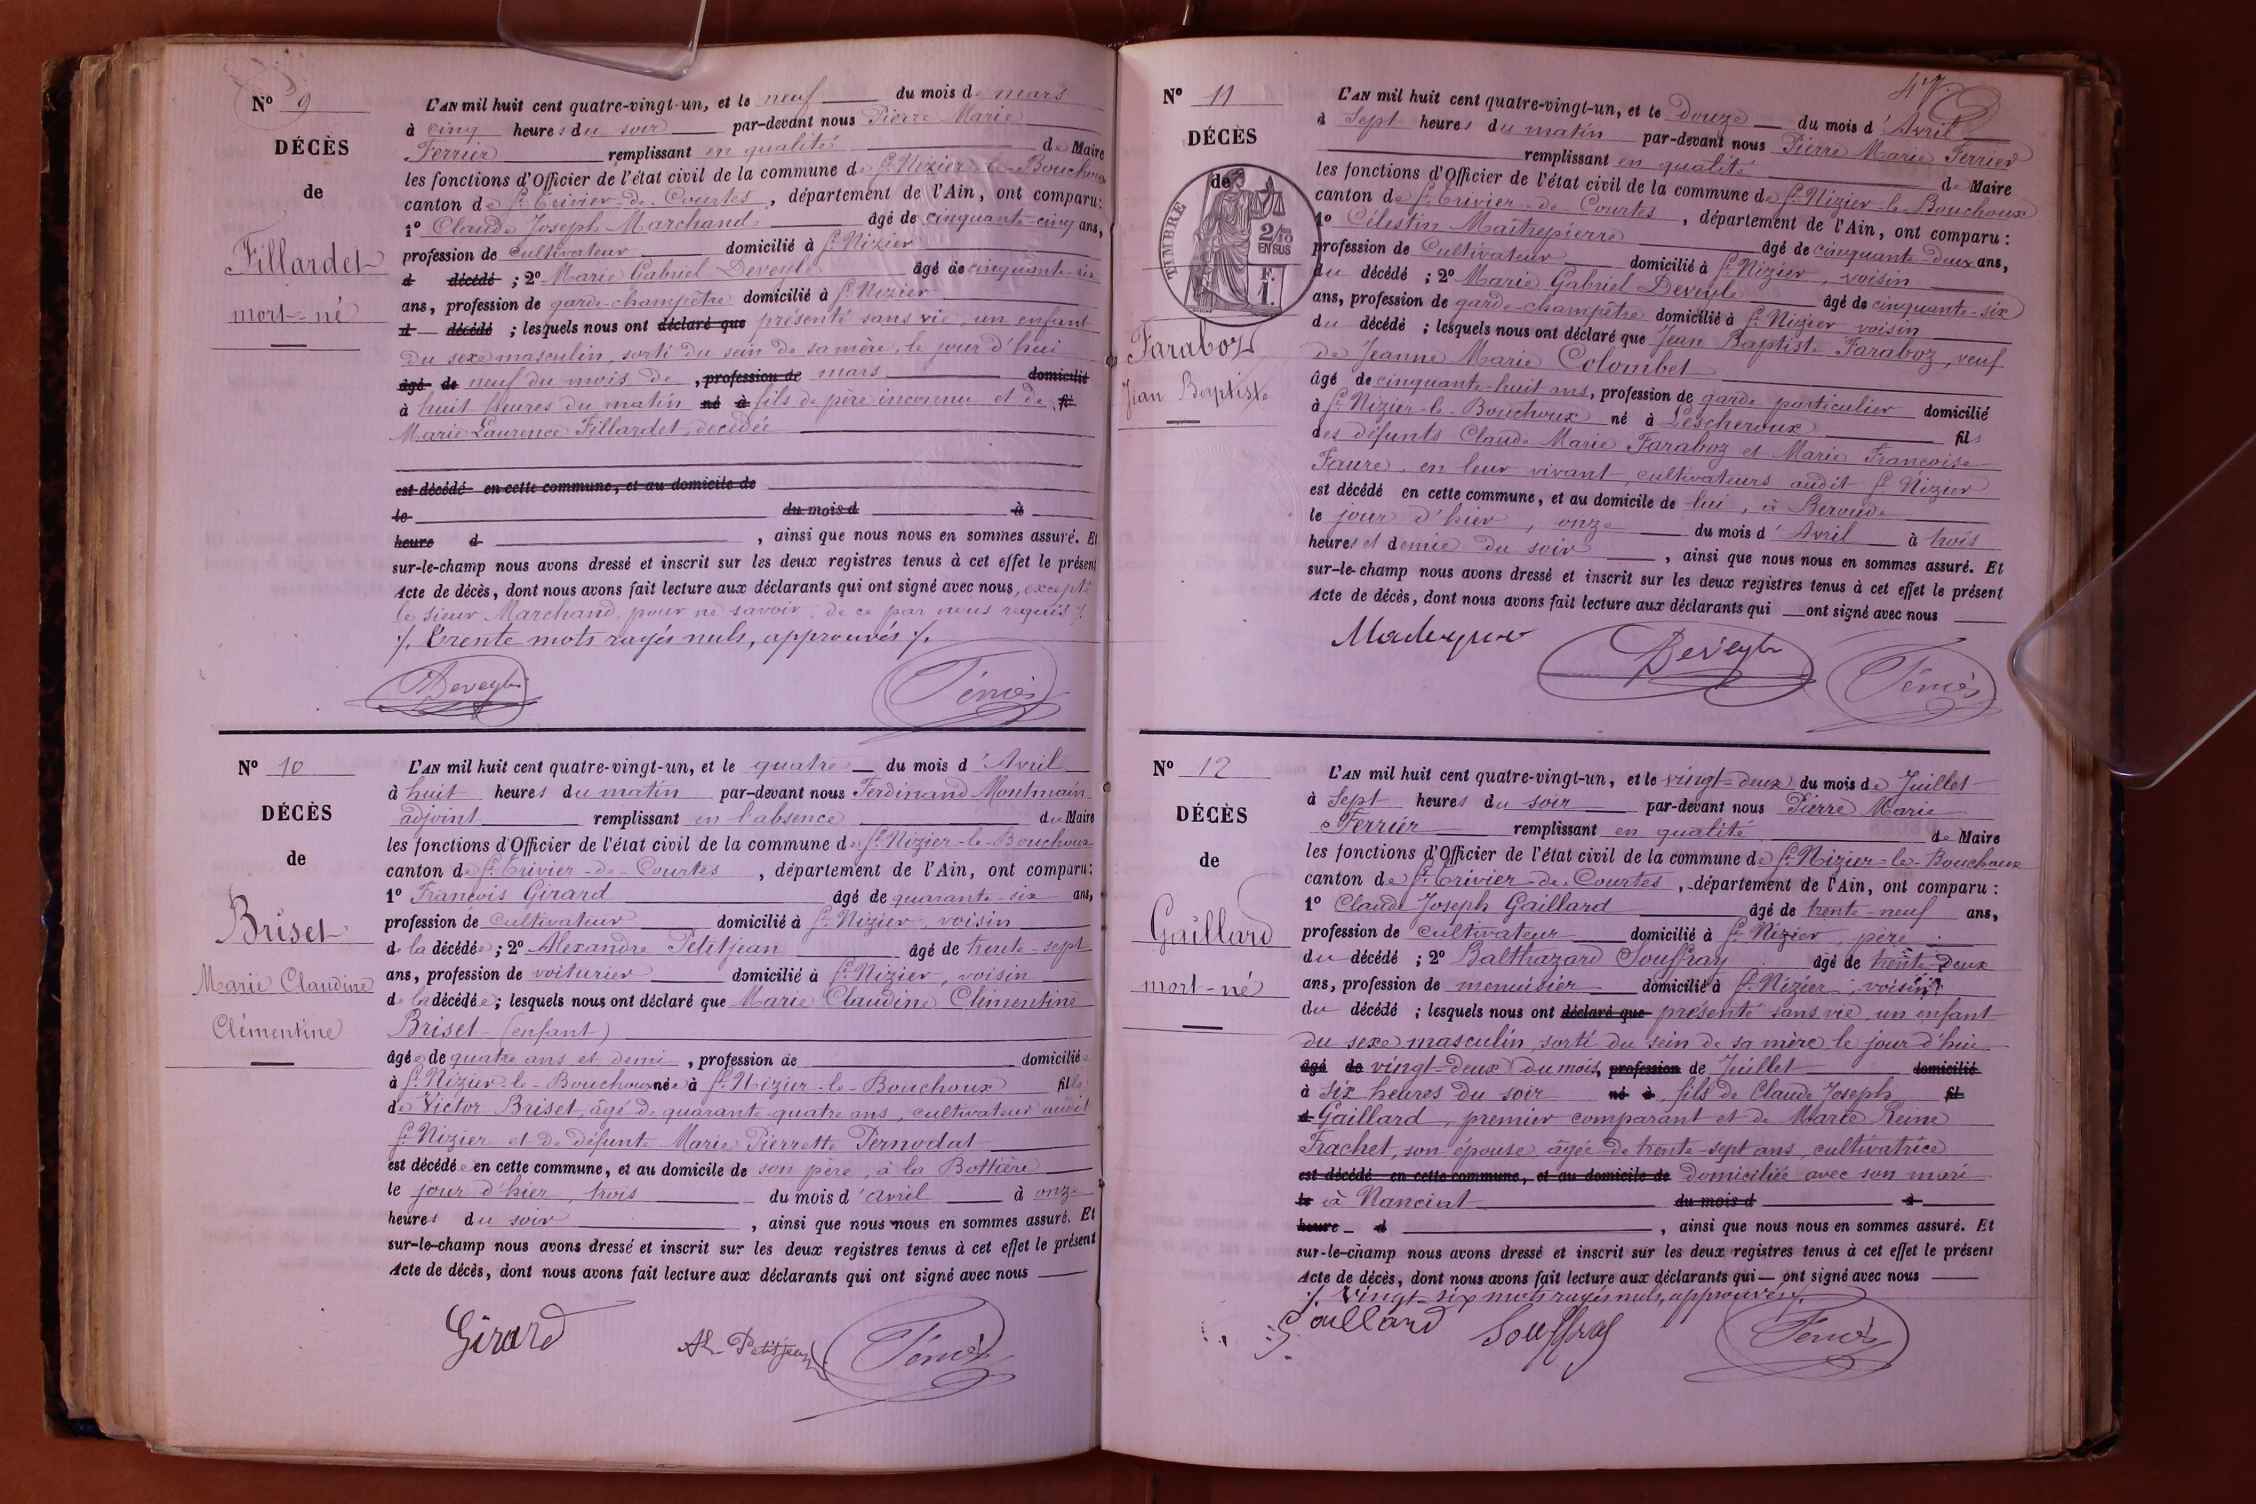 Nº 9
DÉCÈS
de
Fillardet
mort-né
L'AN mil huit cent quatre-vingt-un, et le neuf du mois de mars
à cinq heures du soir par-devant nous Pierre Marie
Ferrier remplissant en qualité de Maire
les fonctions d'Officier de l'état civil de la commune de St Nizier-le-Bouchoux
canton de St Trivier-de-Courtes, département de l'Ain, ont comparu:
1º Claude Joseph Marchand âgé de cinquante-cinq ans,
profession de cultivateur domicilié à St Nizier
d décédé ; 2º Marie Gabriel Deveyle âgé de cinquante-six
ans, profession de garde-champêtre domicilié à St Nizier
d décédé ; lesquels nous ont déclaré que présenté sans vie un enfant
du sexe masculin, sorti du sein de sa mère, le jour d'hui
âgé de neuf du mois de , profession de mars domicilié
à huit heures du matin né à fils de père inconnu et de fi
Marie Laurence Fillardet, décédée
est décédé en cette commune, et au domicile de
le du mois d à
heure d , ainsi que nous nous en sommes assuré. Et
sur-le-champ nous avons dressé et inscrit sur les deux registres tenus à cet effet le présent
Acte de décès, dont nous avons fait lecture aux déclarants qui ont signé avec nous, excepté
le sieur Marchand, pour ne savoir, de ce par nous requis ./.
./. Trente mots rayés nuls, approuvés ./.
Deveyle
Nº 10
DÉCÈS
de
Briset
Marie Claudine
Clémentine
L'AN mil huit cent quatre-vingt-un, et le quatre du mois d'Avril
à huit heures du matin par-devant nous Ferdinand Montmain
adjoint remplissant en l'absence du Maire
les fonctions d'Officier de l'état civil de la commune de St Nizier-le-Bouchoux
canton de St Trivier-de-Courtes, département de l'Ain, ont comparu:
1º François Girard âgé de quarante-six ans,
profession de cultivateur domicilié à St Nizier, voisin
de la décédée ; 2º Alexandre Petitjean âgé de trente-sept
ans, profession de voiturier domicilié à St Nizier, voisin
de la décédée ; lesquels nous ont déclaré que Marie Claudine Clémentine
Briset (enfant)
âgée de quatre ans et demi , profession de domiciliée
à St Nizier-le-Bouchoux née à St Nizier-le-Bouchoux fille
de Victor Briset, âgé de quarante quatre ans, cultivateur audit
St Nizier et de défunte Marie Pierrette Pernodat
est décédée en cette commune, et au domicile de son père, à la Bottière
le jour d'hier, trois du mois d'avril à onze
heures du soir , ainsi que nous nous en sommes assuré. Et
sur-le-champ nous avons dressé et inscrit sur les deux registres tenus à cet effet le présent
Acte de décès, dont nous avons fait lecture aux déclarants qui ont signé avec nous
Girard
Al. Petitjean
47
Nº 11
DÉCÈS
de
TIMBRE
2/10
EN SUS
F.
1.
Faraboz
Jean Baptiste
L'AN mil huit cent quatre-vingt-un, et le Douze du mois d'Avril
à Sept heures du matin par-devant nous Pierre Marie Ferrier
remplissant en qualité de Maire
les fonctions d'Officier de l'état civil de la commune de St Nizier-le-Bouchoux
canton de St Trivier-de-Courtes, département de l'Ain, ont comparu :
1º Célestin Maitrepierre âgé de cinquante-deux ans,
profession de Cultivateur domicilié à St Nizier, voisin
du décédé ; 2º Marie Gabriel Deveyle âgé de cinquante-six
ans, profession de garde-champêtre domicilié à St Nizier voisin
du décédé ; lesquels nous ont déclaré que Jean Baptiste Faraboz, veuf
de Jeanne Marie Colombet
âgé de cinquante-huit ans, profession de garde particulier domicilié
à St Nizier-le-Bouchoux né à Lescheroux fils
des défunts Claude Marie Faraboz et Marie Françoise
Faure, en leur vivant, cultivateurs audit St Nizier
est décédé en cette commune, et au domicile de lui, à Beroude
le jour d'hier, onze du mois d'Avril à trois
heures et demie du soir , ainsi que nous nous en sommes assuré. Et
sur-le-champ nous avons dressé et inscrit sur les deux registres tenus à cet effet le présent
Acte de décès, dont nous avons fait lecture aux déclarants qui ont signé avec nous
Deveyle
Nº 12
DÉCÈS
de
Gaillard
mort-né
L'AN mil huit cent quatre-vingt-un, et le vingt-deux du mois de Juillet
à Sept heures du soir par-devant nous Pierre Marie
Ferrier remplissant en qualité de Maire
les fonctions d'Officier de l'état civil de la commune de St Nizier-le-Bouchoux
canton de St Trivier-de-Courtes, département de l'Ain, ont comparu :
1º Claude Joseph Gaillard âgé de trente-neuf ans,
profession de cultivateur domicilié à St Nizier, père
du décédé ; 2º Balthazard Souffray âgé de trente-deux
ans, profession de menuisier domicilié à St Nizier, voisin
du décédé ; lesquels nous ont déclaré que présenté sans vie, un enfant
du sexe masculin, sorti du sein de sa mère le jour d'hui
âgé de vingt-deux du mois, profession de Juillet domicilié
à six heures du soir né à fils de Claude Joseph fil
d Gaillard, premier comparant et de Marie Reine
Frachet, son épouse âgée de trente-sept ans, cultivatrice
est décédé en cette commune, et au domicile de domiciliée avec son mari
le à Nancint du mois d à
heure d , ainsi que nous nous en sommes assuré. Et
sur-le-champ nous avons dressé et inscrit sur les deux registres tenus à cet effet le présent
Acte de décès, dont nous avons fait lecture aux déclarants qui ont signé avec nous
./. Vingt-six mots rayés nuls, approuvés ./.
Gaillard
Souffray